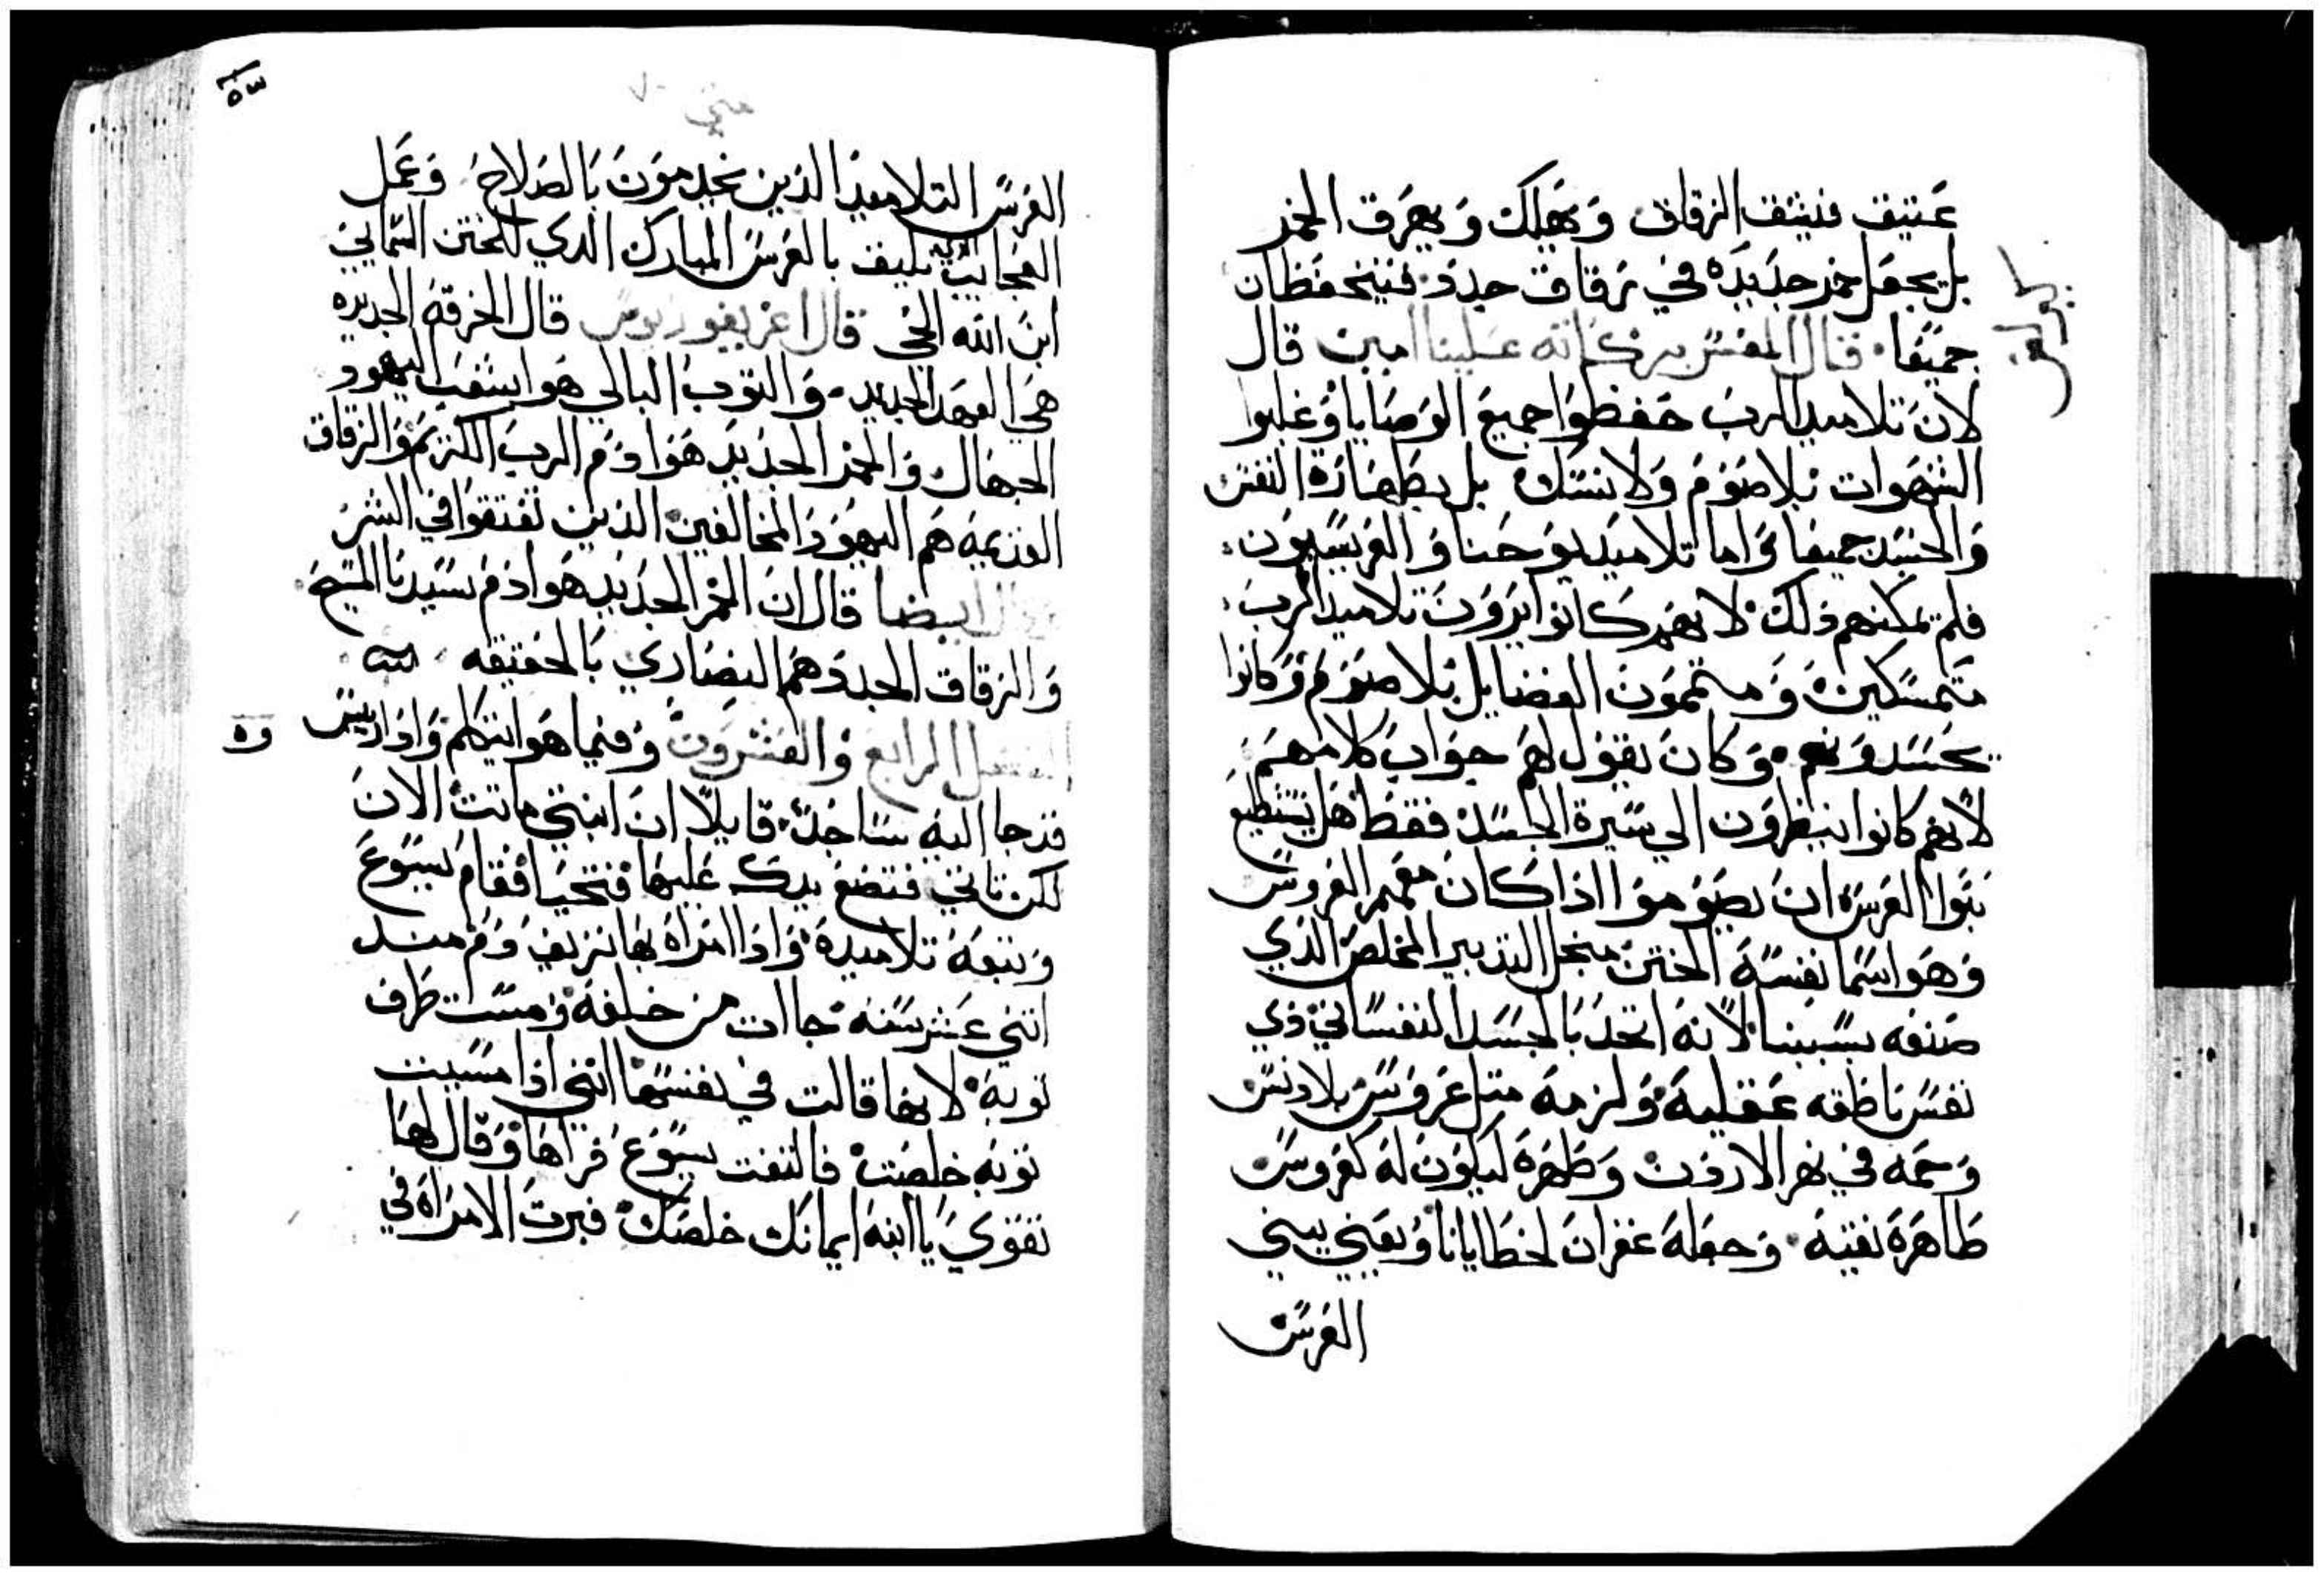 عتيق فتشق الزقاق وتهلك وتهرق الخمر
بل يجعل خمر جديده في زقاق جدد فيتحفظان
جميعًا قال المفسر بركاته علينا امين قال
لان تلاميد الرب حفظوا جميع الوصايا وغلبوا
الشهوات بلا صوم ولا نسك بل بطهارة النفس
والجسد جميعا واما تلاميد يوحنا والفريسيون
فلم يمكنهم ذلك لانهم كانوا يرون تلاميد الرب
متمسكين ومتممون الفضايل بلا صوم وكانوا
يحسدونهم وكان يقول لهم جواب كلامهم
لانهم كانوا ينظرون الي سيرة الجسد فقط هل يستطيع
بنوا العرس ان يصوموا اذا كان معهم العروس
وهو اسما نفسه الختن منجل التدبير المخلص الذي
صنعه بسببنا لانه اتحد بالجسد النفساني ذي
نفس ناطقه عقليه ولزمه متل عروس بلا دنس
وحمه في نهر الاردن وطهره ليكون له كعروس
طاهرة نقيه وجعله غفران لخطايانا ويعني ببني
العرس
متي
العرس التلاميد الذين يخدمون بالصلاح وعمل
العجايب التي تليق بالعرس المبارك الدي للختن السمايي
ابن الله الحي قال اغريغوريوس قال الخرقة الجديده
هي العهد الجديد والتوب البالي هو اشعب اليهود
الجهال والخمر الجديد هوا دم الرب الكريم والزقاق
القديمه هم اليهود المخالفين الذين تعتقوا في الشر
ايضا قال ان الخمر الجديد هوا دم سيدنا المسيح
والزقاق الجدد هم النصاري بالحقيقه
الفصل الرابع والعشرون وفيما هو يتكلم واذا ريس
قد جا اليه ساجدًا قايلًا ان ابنتي ماتت الان
لكن تاتي فتضع يدك عليها فتحيا فقام يسوع
وتبعه تلاميده واذا امراة بها نزيف دم مند
اتني عشر سنه جاات من خلفه ومست طرف
توبه لانها قالت في نفسها انني اذا مسيت
توبه خلصت فالتفت يسوع فراها وقال لها
تقوي يا ابنه ايمانك خلصك فبرت الامراة في